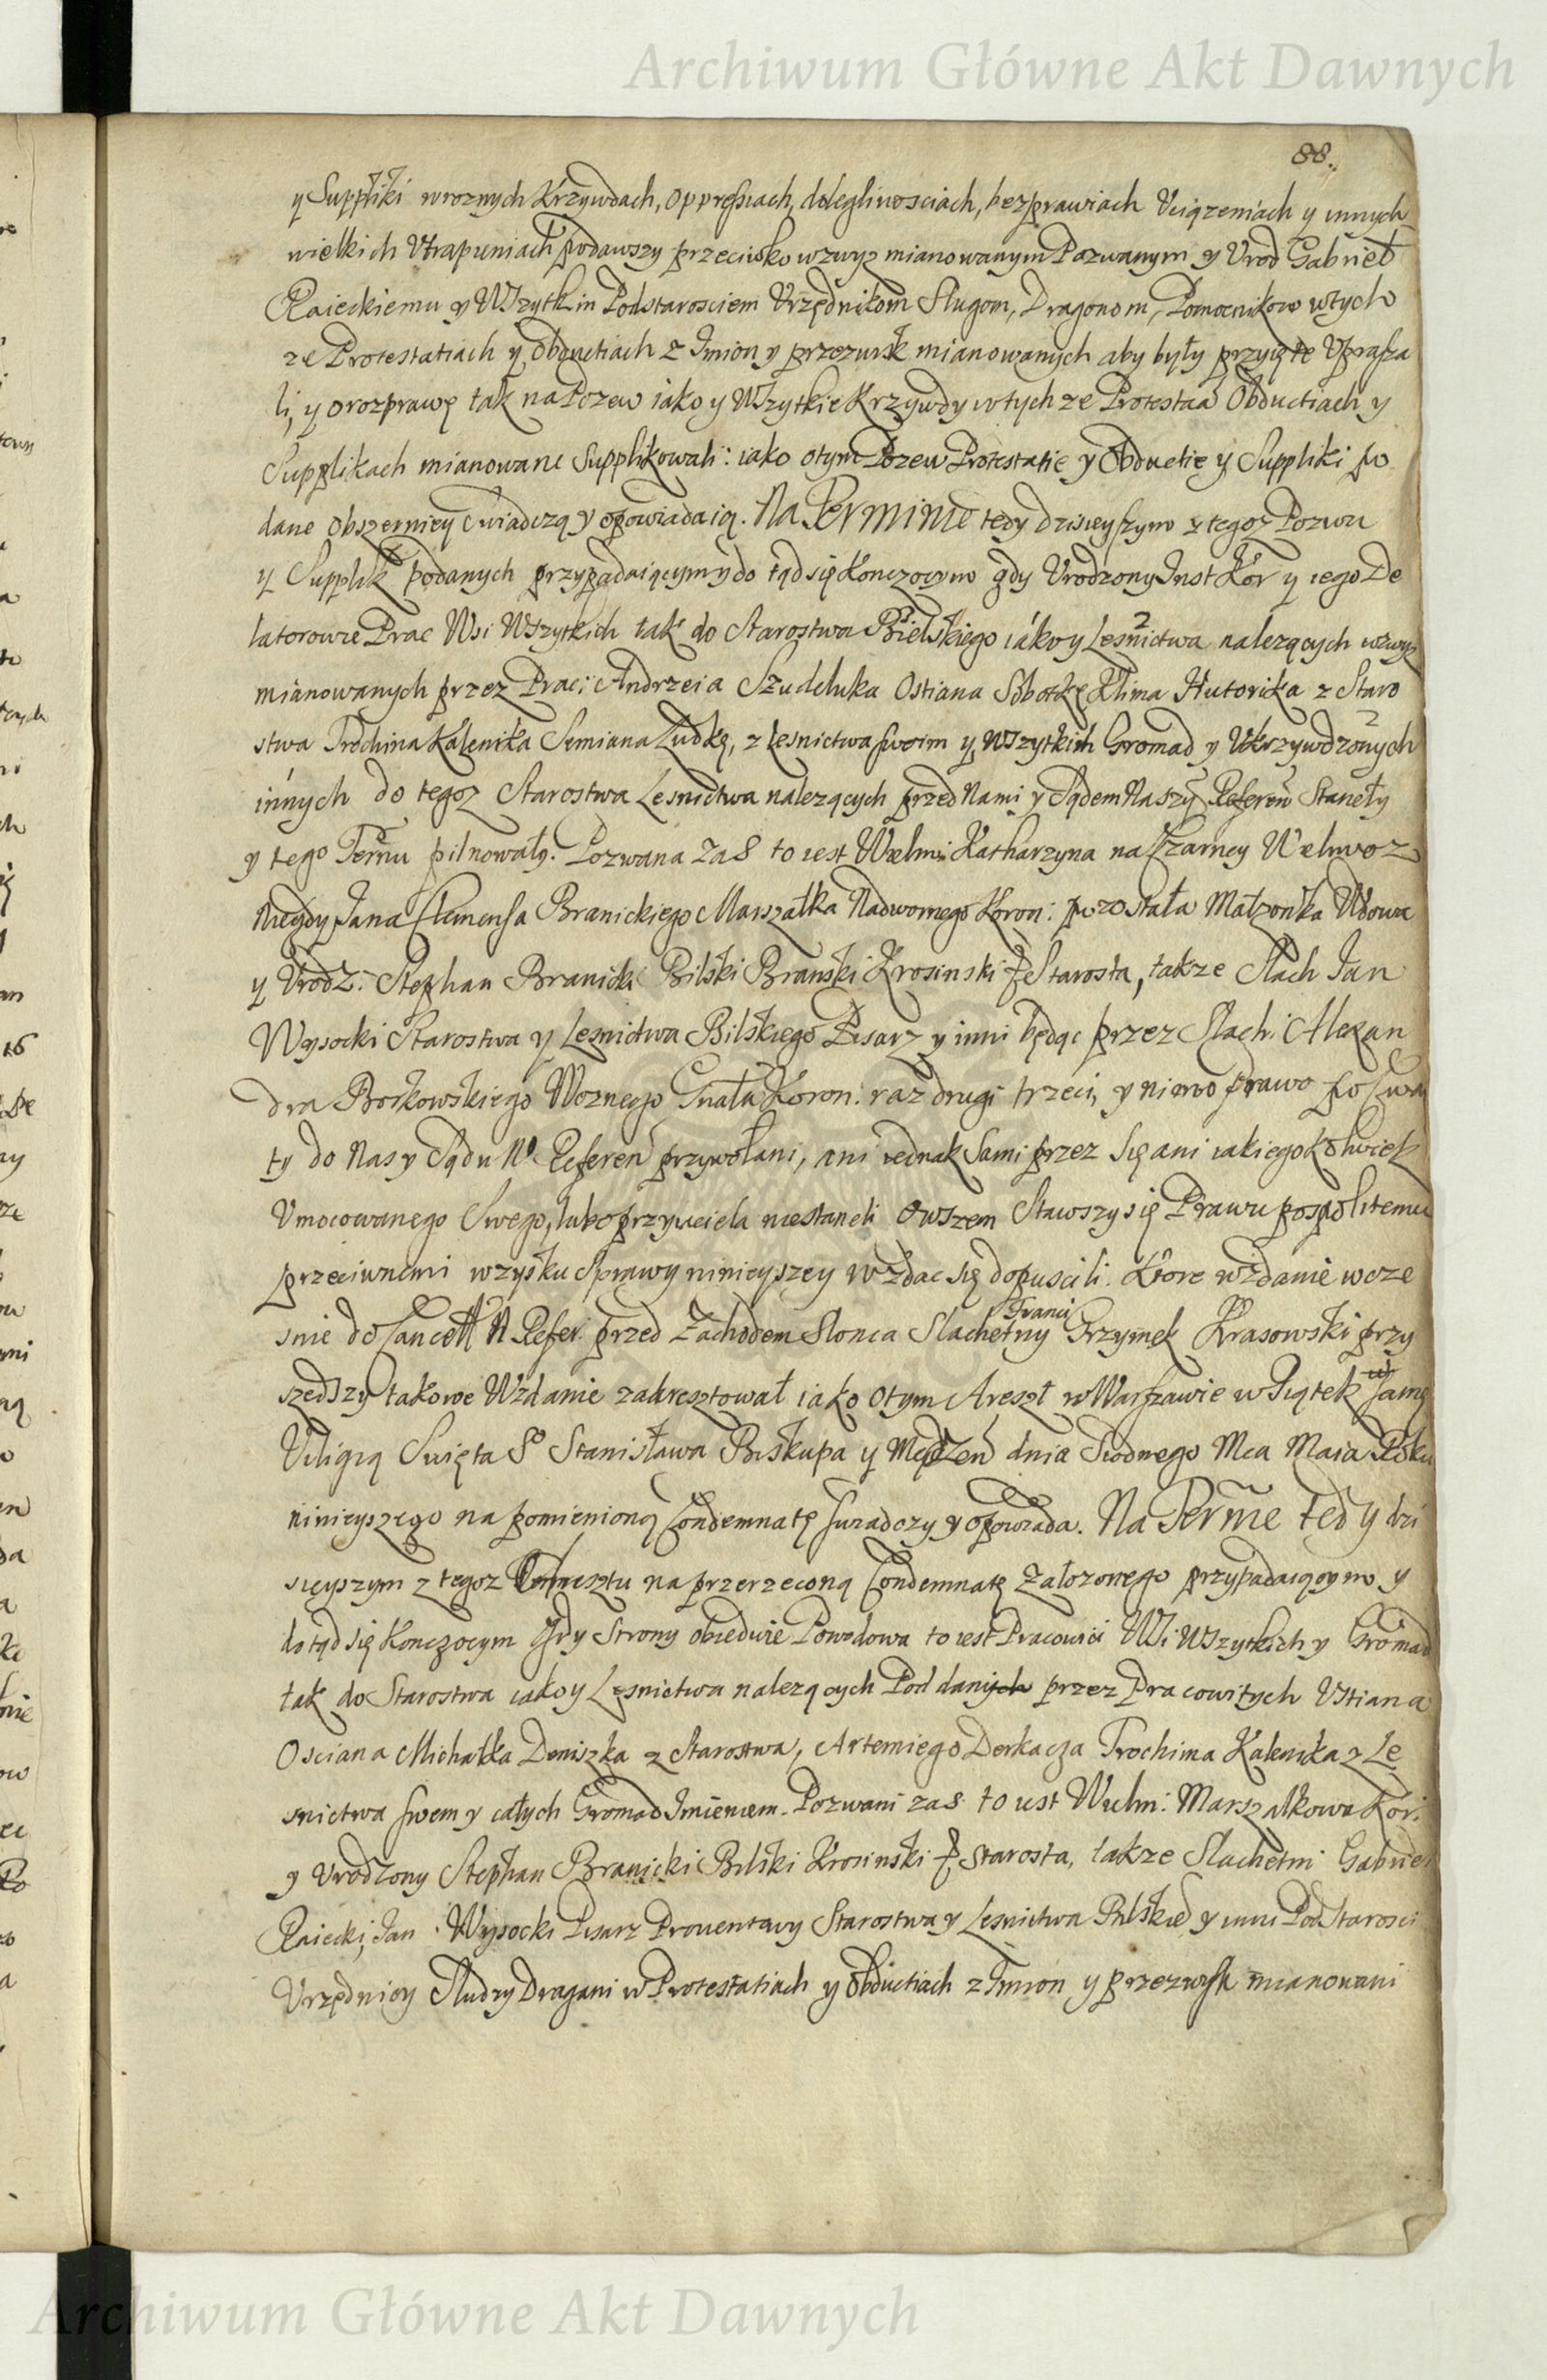 Archiwum Główne Akt Dawnych
88.
y Suppliki wroznych Krzywdach, oppressiach, dolegliwosciach, bezprawiach Uciązeniach y innych
wielkich Utrapieniach podawszy przeciwko wzwyz mianowanym Pozwanym y Urod Gabriel
Raieckiemu y Wszytkim Podstarosciem Urzędnikom Sługom, Dragonom, Pomocnikow wtych
ze Protestatiach y obductiach z Imion y przezwisk mianowanych aby były przyięte Uprasza
li, y orozprawę tak na Pozew iako y Wszytkie Krzywdy wtych ze Protestaa Obductiach y
Supplikach mianowane Supplikowali: iako otym Pozew Protestatie y Obductie y Suppliki po
dane obszerniey swiadczą y opowiadaią. Na Terminie tedy dzisieyszym z tegoz Pozwu
y Supplik podanych przypadaiącym y do tąd się konczącym gdy Urodzony Inst Kor y iego De
latorowie Prac Wsi Wszytkich tak do Starostwa Bielskiego iako y Lesnictwa nalezących wzwyz
mianowanych przez Prac: Andrzeia Szudeluka Ostiana Sobotkę Klima Hutorika z Staro
stwa Trochina Kalenika Semiana Zudkę, z Lesnictwa swoim y Wszytkich Gromad y Ukrzywdzonych
innych do tegoz Starostwa Lesnictwa nalezących przed Nami y Sądem Naszy Referen Stanęły
y tego Termu pilnowały. Pozwana zas to iest Wielm: Katharzyna na Czarney Wielmoz
Niegdy Jana Clemensa Branickiego Marszałka Nadwornego Koron: pozostała Małzonka Wdowa
y Urodz: Stephan Branicki Bilski Branski Krosinski & Starosta, takze Slach Jan
Wysocki Starostwa y Lesnictwa Bilskiego Pisarz y inni będąc przez Slach: Alexan
dra Borkowskiego Woznego Gnału Koron: raz drugi trzeci, y nimo prawo po czwar
ty do Nas y Sądu No. Referen przywołani, ani iednak sami przez się ani iakiegokolwiek
Umocowanego Swego, lubo przyiaciela niestaneli Owszem Stawszy się Prawu pospolitemu
przeciwnemi wzysku sprawy ninieyszey wzdac się dopuscili. Ktore wzdanie wcze
snie do Cancell N Refer. przed Zachodem Słonca Slachetny Franci Grzymek Krasowski przy
szedszy takowe Wzdanie zakresztował iako otym Areszt w Warszawie w Piątek w samę
Viligią Swięta So Stanisława Biskupa y Męczen dnia Siodmego Mca Maia Roku
ninieyszego na pomienioną Condemnatę swiadczy y opowiada. Na Terme tedy dzi
sieyszym z tegoz Arresztu na przerzeconą Condemnatę załozonego przypadaiącym y
do tąd się konczocym Gdy Strony obiedwie Powodowa to iest Pracowici Wsi Wszytkich y Gromad
tak do Starostwa iako y Lesnictwa nalezących Poddanych przez Pracowitych Ustiana
Osciana Michałka Deniszka z Starostwa, Artemiego Derkacza Trochima Kalenika z Le
snictwa swem y całych Gromad Imieniem. Pozwani zas to iest Wielm: Marszałkowa Kor:
y Urodzony Stephan Branicki Bilski Krosinski & Starosta, takze Slachetni Gabriel
Raiecki, Jan Wysocki Pisarz Prowentowy Starostwa y Lesnictwa Bilskie y inni Podstarosci
Urzędnicy Słudzy Dragani w Protestatiach y obductiach z Imion y przezwisk mianowani
Archiwum Główne Akt Dawnych